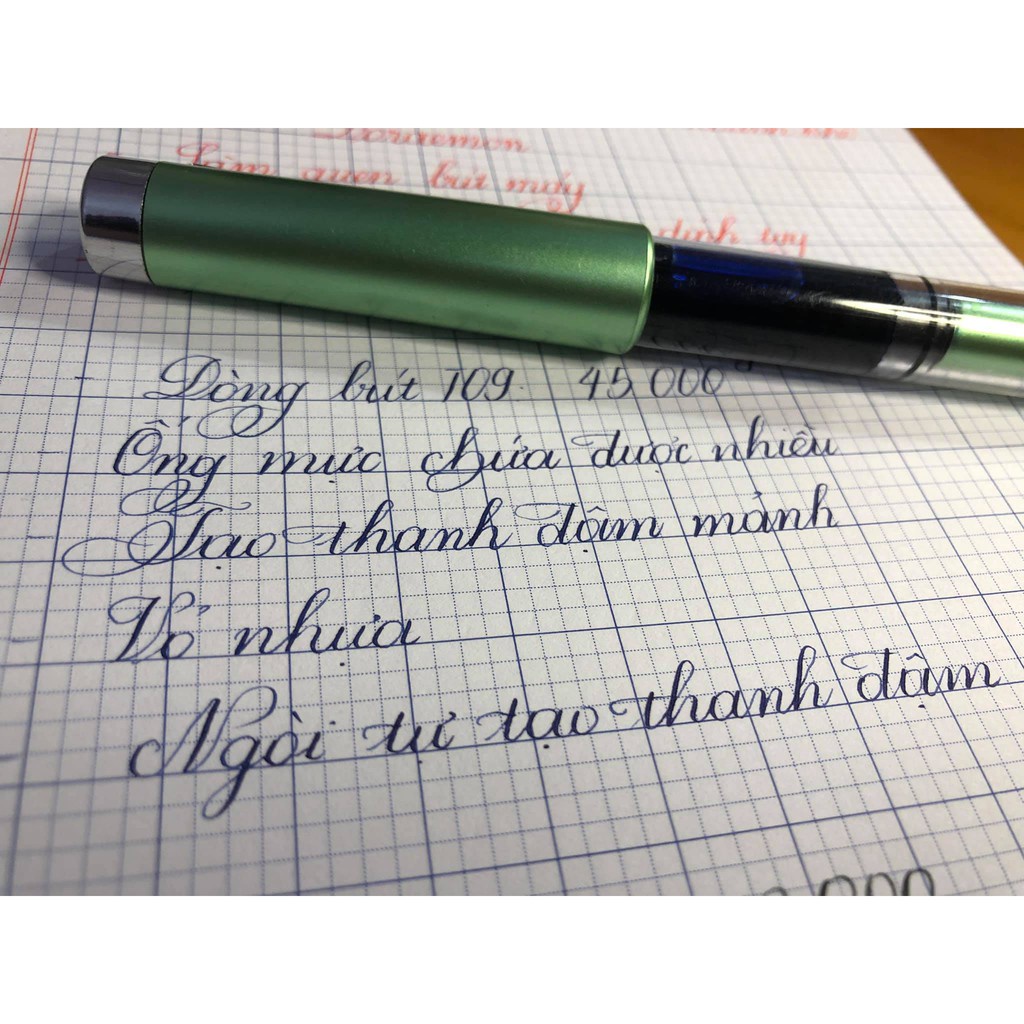 Doraemon
Làm quen bút máy
dính tay
Dòng bút 109. 45.000đ
Ống mực chứa được nhiều
Tạo thanh đậm mảnh
Vỏ nhựa
Ngòi tự tạo thanh đậm